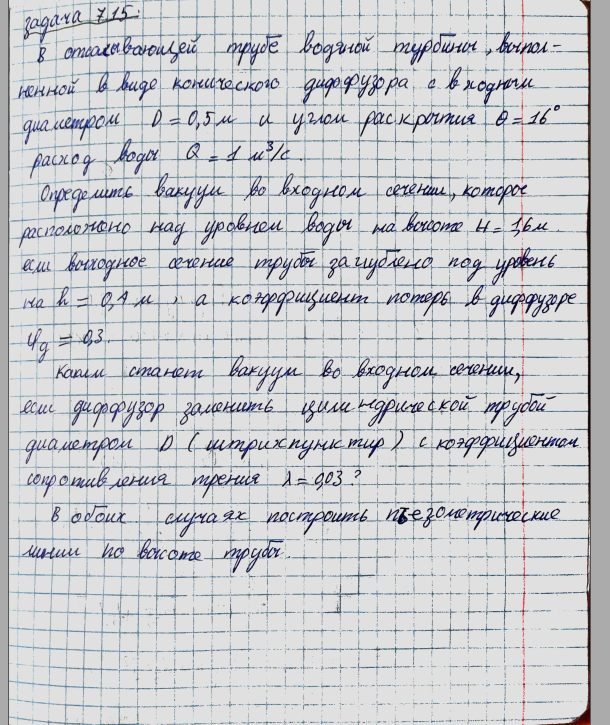 задача 7.15.
В отсасывающей трубе водяной турбины, выпол-
ненной в виде конического диффузора с входным
диаметром D = 0,5 м и углом раскрытия θ = 16°
расход воды Q = 1 м³/с.
Определить вакуум во входном сечении, которое
расположено над уровнем воды на высоте H = 1,6 м.
если выходное сечение трубы заглублено под уровень
на h = 0,4 м, а коэффициент потерь в диффузоре
φд = 0,3.
Каким станет вакуум во входном сечении,
если диффузор заменить цилиндрической трубой
диаметром D (штрихпунктир) с коэффициентом
сопротивления трения λ = 0,03?
В обоих случаях построить пьезометрические
линии по высоте трубы.